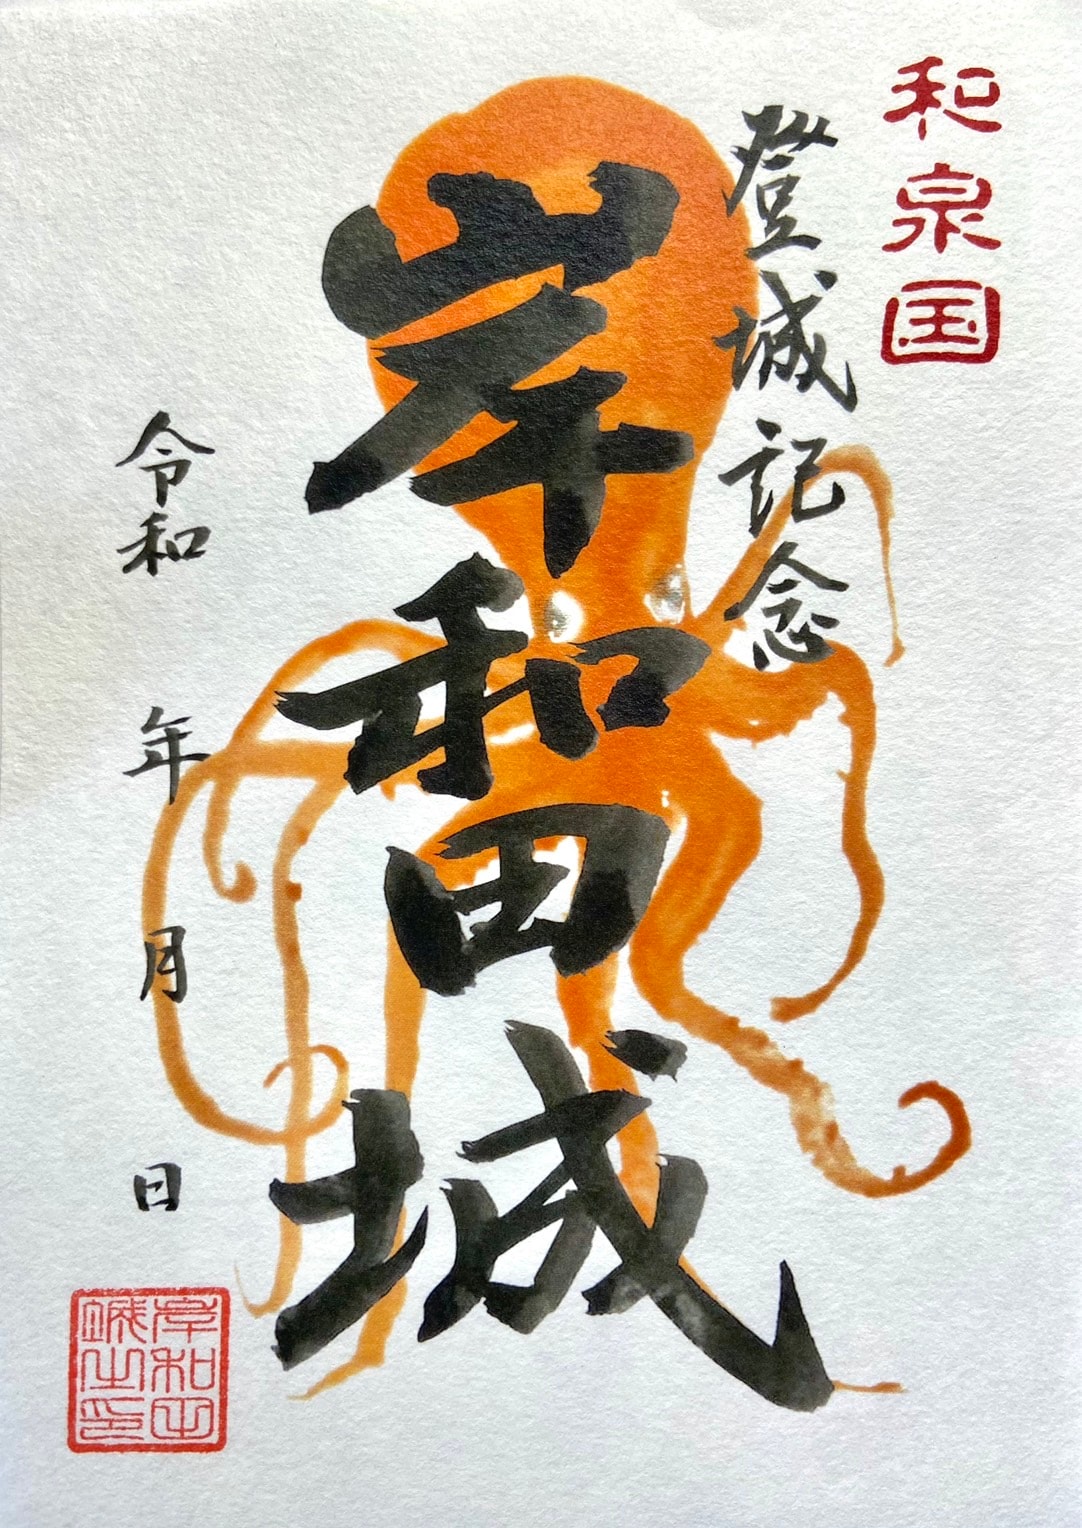 和泉国
登城記念
岸和田城
令和 年 月 日
岸和田
城之印